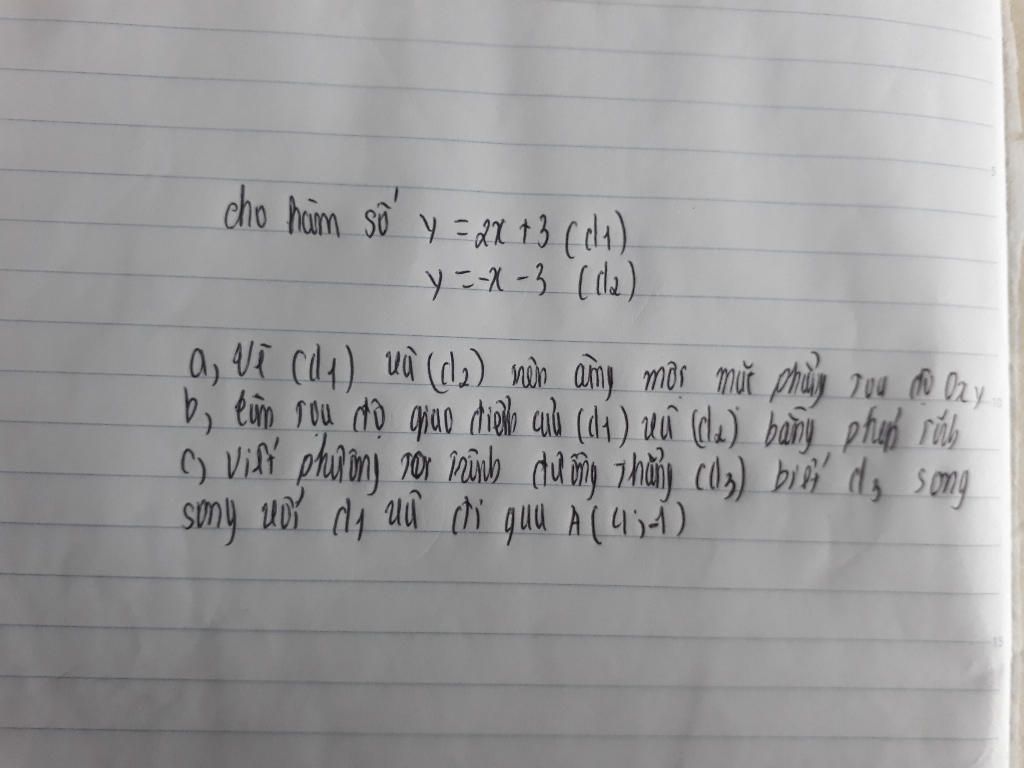 cho hàm số y = 2x + 3 (d1)
y = -x - 3 (d2)
a, vẽ (d1) và (d2) trên cùng một mặt phẳng toạ độ Oxy
b, tìm toạ độ giao điểm của (d1) và (d2) bằng phép tính
c, viết phương trình đường thẳng (d3) biết d3 song
song với d1 và đi qua A(4;-1)